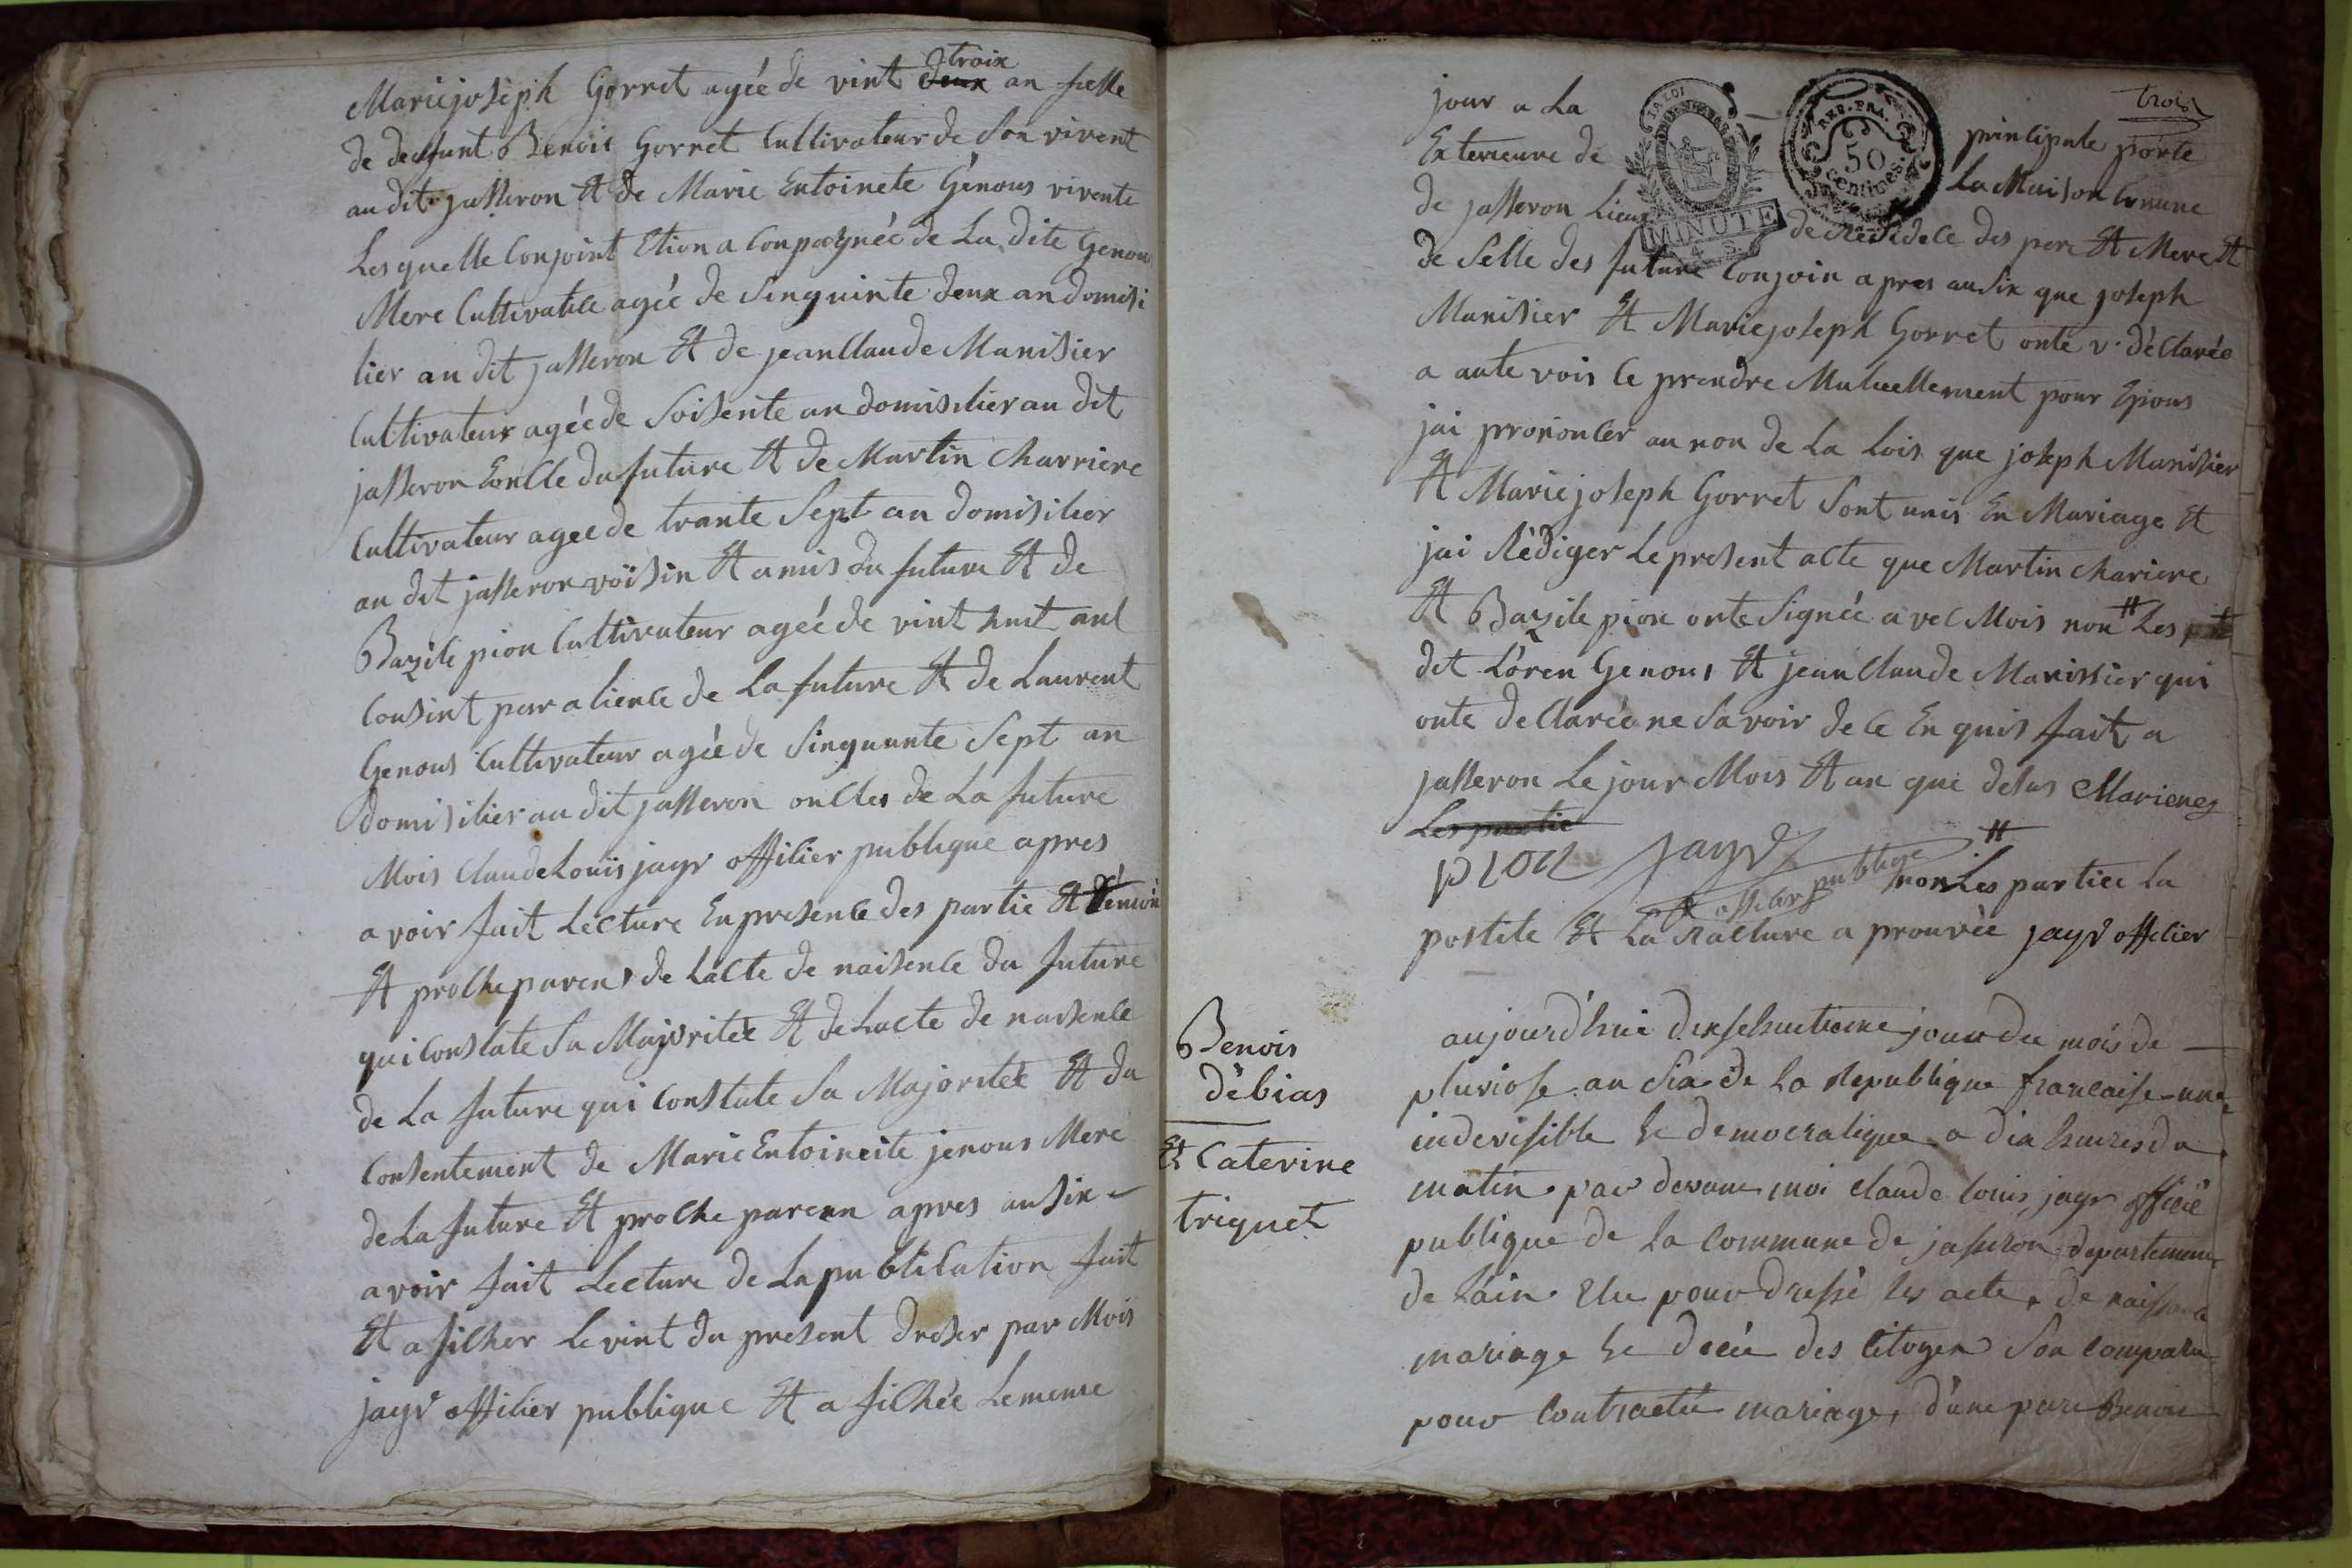 Marie joseph Gorret agéé de vint deux troix an fielle
de deffunt Benois Gorret Cultivateur de Son vivent
au dit jasseron Et de Marie Entoinete Génous vivente
Les quelle Conjoint Etion a Conpagnéé de La dite Genou
Mere Cultivatile agéé de Sinquinte deux an domisi
lier au dit jasseron Et de jean Claude Manisier
Cultivateur agéé de Soisente an domisilier au dit
jasseron Eonlle du future Et de Martin Charriere
Cultivateur ageé de trante Sept an domisilier
au dit jasseron voïsin Et amis du future Et de
Bazile pion Cultivateur agéé de vint huit anl
Cousint par alienle de La future Et de Laurent
Genous Cultivateur agéé de Sinquante Sept an
domisilier au dit jasseron onlles de La future
Mois Claude Louis jayr offilier publique apres
avoir fait Lecture En presenle des partie Et témoin
Et prolhe paren de Lalte de naisenle du future
qui Constate Sa Majoritéé Et de Lacte de naisenle
de La future qui Constate Sa Majoritéé Et du
Consentement de Marie Entoineite jenous Mere
de La future Et prolhe parenn apres ausix
avoir fait Lecture de La publilation fait
Et a filher Le vint du present dreser par Mois
jayr offilier publique Et a filhéé Le meme
trois
LA LOI
REP. FRA.
50
centimes.
MINUTE
jour a La principale porte
Exterieure de La Maison Comune
de jasseron Lieux de Residele des pere Et Mere Et
de Selle des future Conjoin apres ausix que joseph
Manisier Et Marie joseph Gorret onte v. déClaréé
a aute vois le prendre Mutuellement pour Epous
jai prononler au non de La Lois que joseph Manisier
Et Marie joseph Gorret Sont unis En Mariage Et
jai Rédiger Le present alte que Martin Chariere
Et Bazile pion onte Signéé avel Mois non # Les
dit Loren Genous Et jean Claude Manissier qui
onte de Claréé ne Savoir de le En quis fait a
jasseron Le jour Mois Et an que desus
Les partie
pion jayr
offilier publige
# non Les partiee La
postile Et La Racture a prouvéé jayr offilier
Benois
débias
Et Caterine
triquet
aujourd'hui dixsehuitieme jour du mois de
pluviose an Six de La Republique francaise une
indevisible Et democratique a dix heures du
matin par devant moi claude louis jayr officié
publique de La Commune de jasseron departement
de Lain Elu pour dressé les acte de naissance
mariage Et décéé des Citoyen Son Comparu
pour Contracté mariage, d'une part Benois